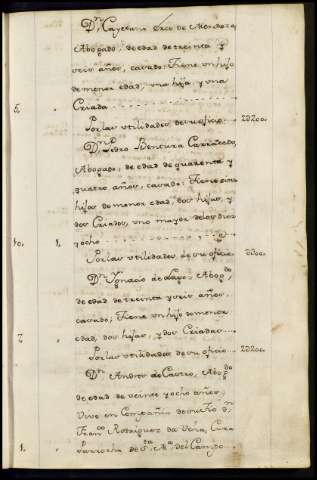 Dn. Cayetano Orco de Mendoza,
Abogado, de edad de treinta y
seis años, casado: Tiene un hijo
de menor edad, una hija y una
5, , Criada
Por las utilidades de su oficio 2D200,
Dn. Pedro Bentura
Abogado, de edad de quarenta y
quatro años, casado: Tiene cinco
hijos de menor edad, dos hijas, y
dos Criados, uno mayor de los diez
10, 1, y ocho
Por las utilidades de su oficio
Dn. Ygnacio de Lago, Abogdo
de edad de treinta y seis años,
casado, Tiene un hijo de menor
7 , edad, dos hijas, y dos Criadas
Por las utilidades de su oficio 2D200,
Dn. Andres de Castro, Abogdo
de edad de veinte y ocho años,
Vive en Compañia de su tio Dn
Franco Rodriguez de Vera, Cura
1, , Parrocho de Sta Ma del Campo